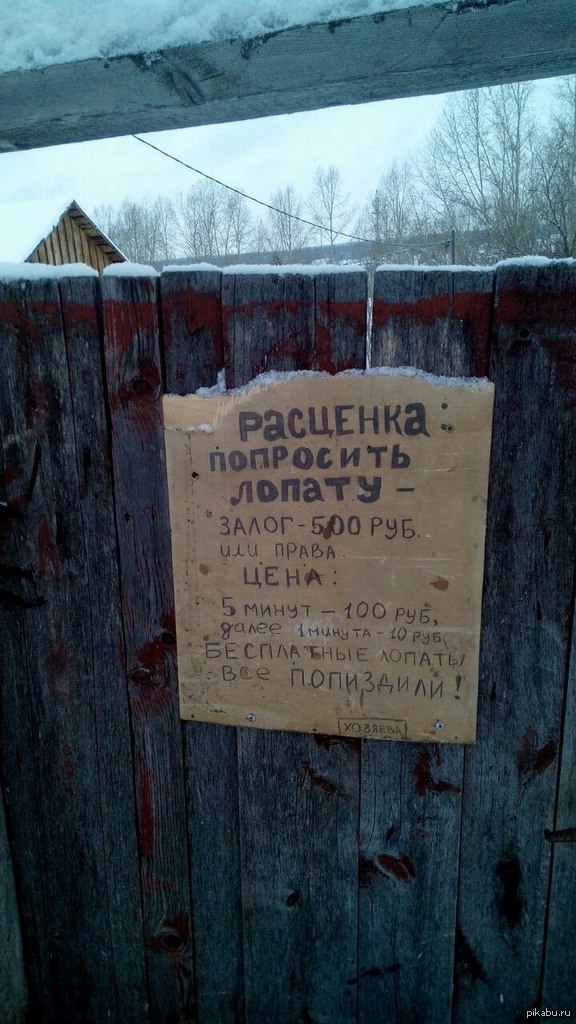 РАСЦЕНКА:
ПОПРОСИТЬ
ЛОПАТУ –
ЗАЛОГ - 500 РУБ.
ИЛИ ПРАВА.
ЦЕНА:
5 МИНУТ – 100 РУБ,
далее 1 минута - 10 РУБ.
БЕСПЛАТНЫЕ ЛОПАТЫ
ВСЕ ПОПИЗДИЛИ!
ХОЗЯЕВА
pikabu.ru